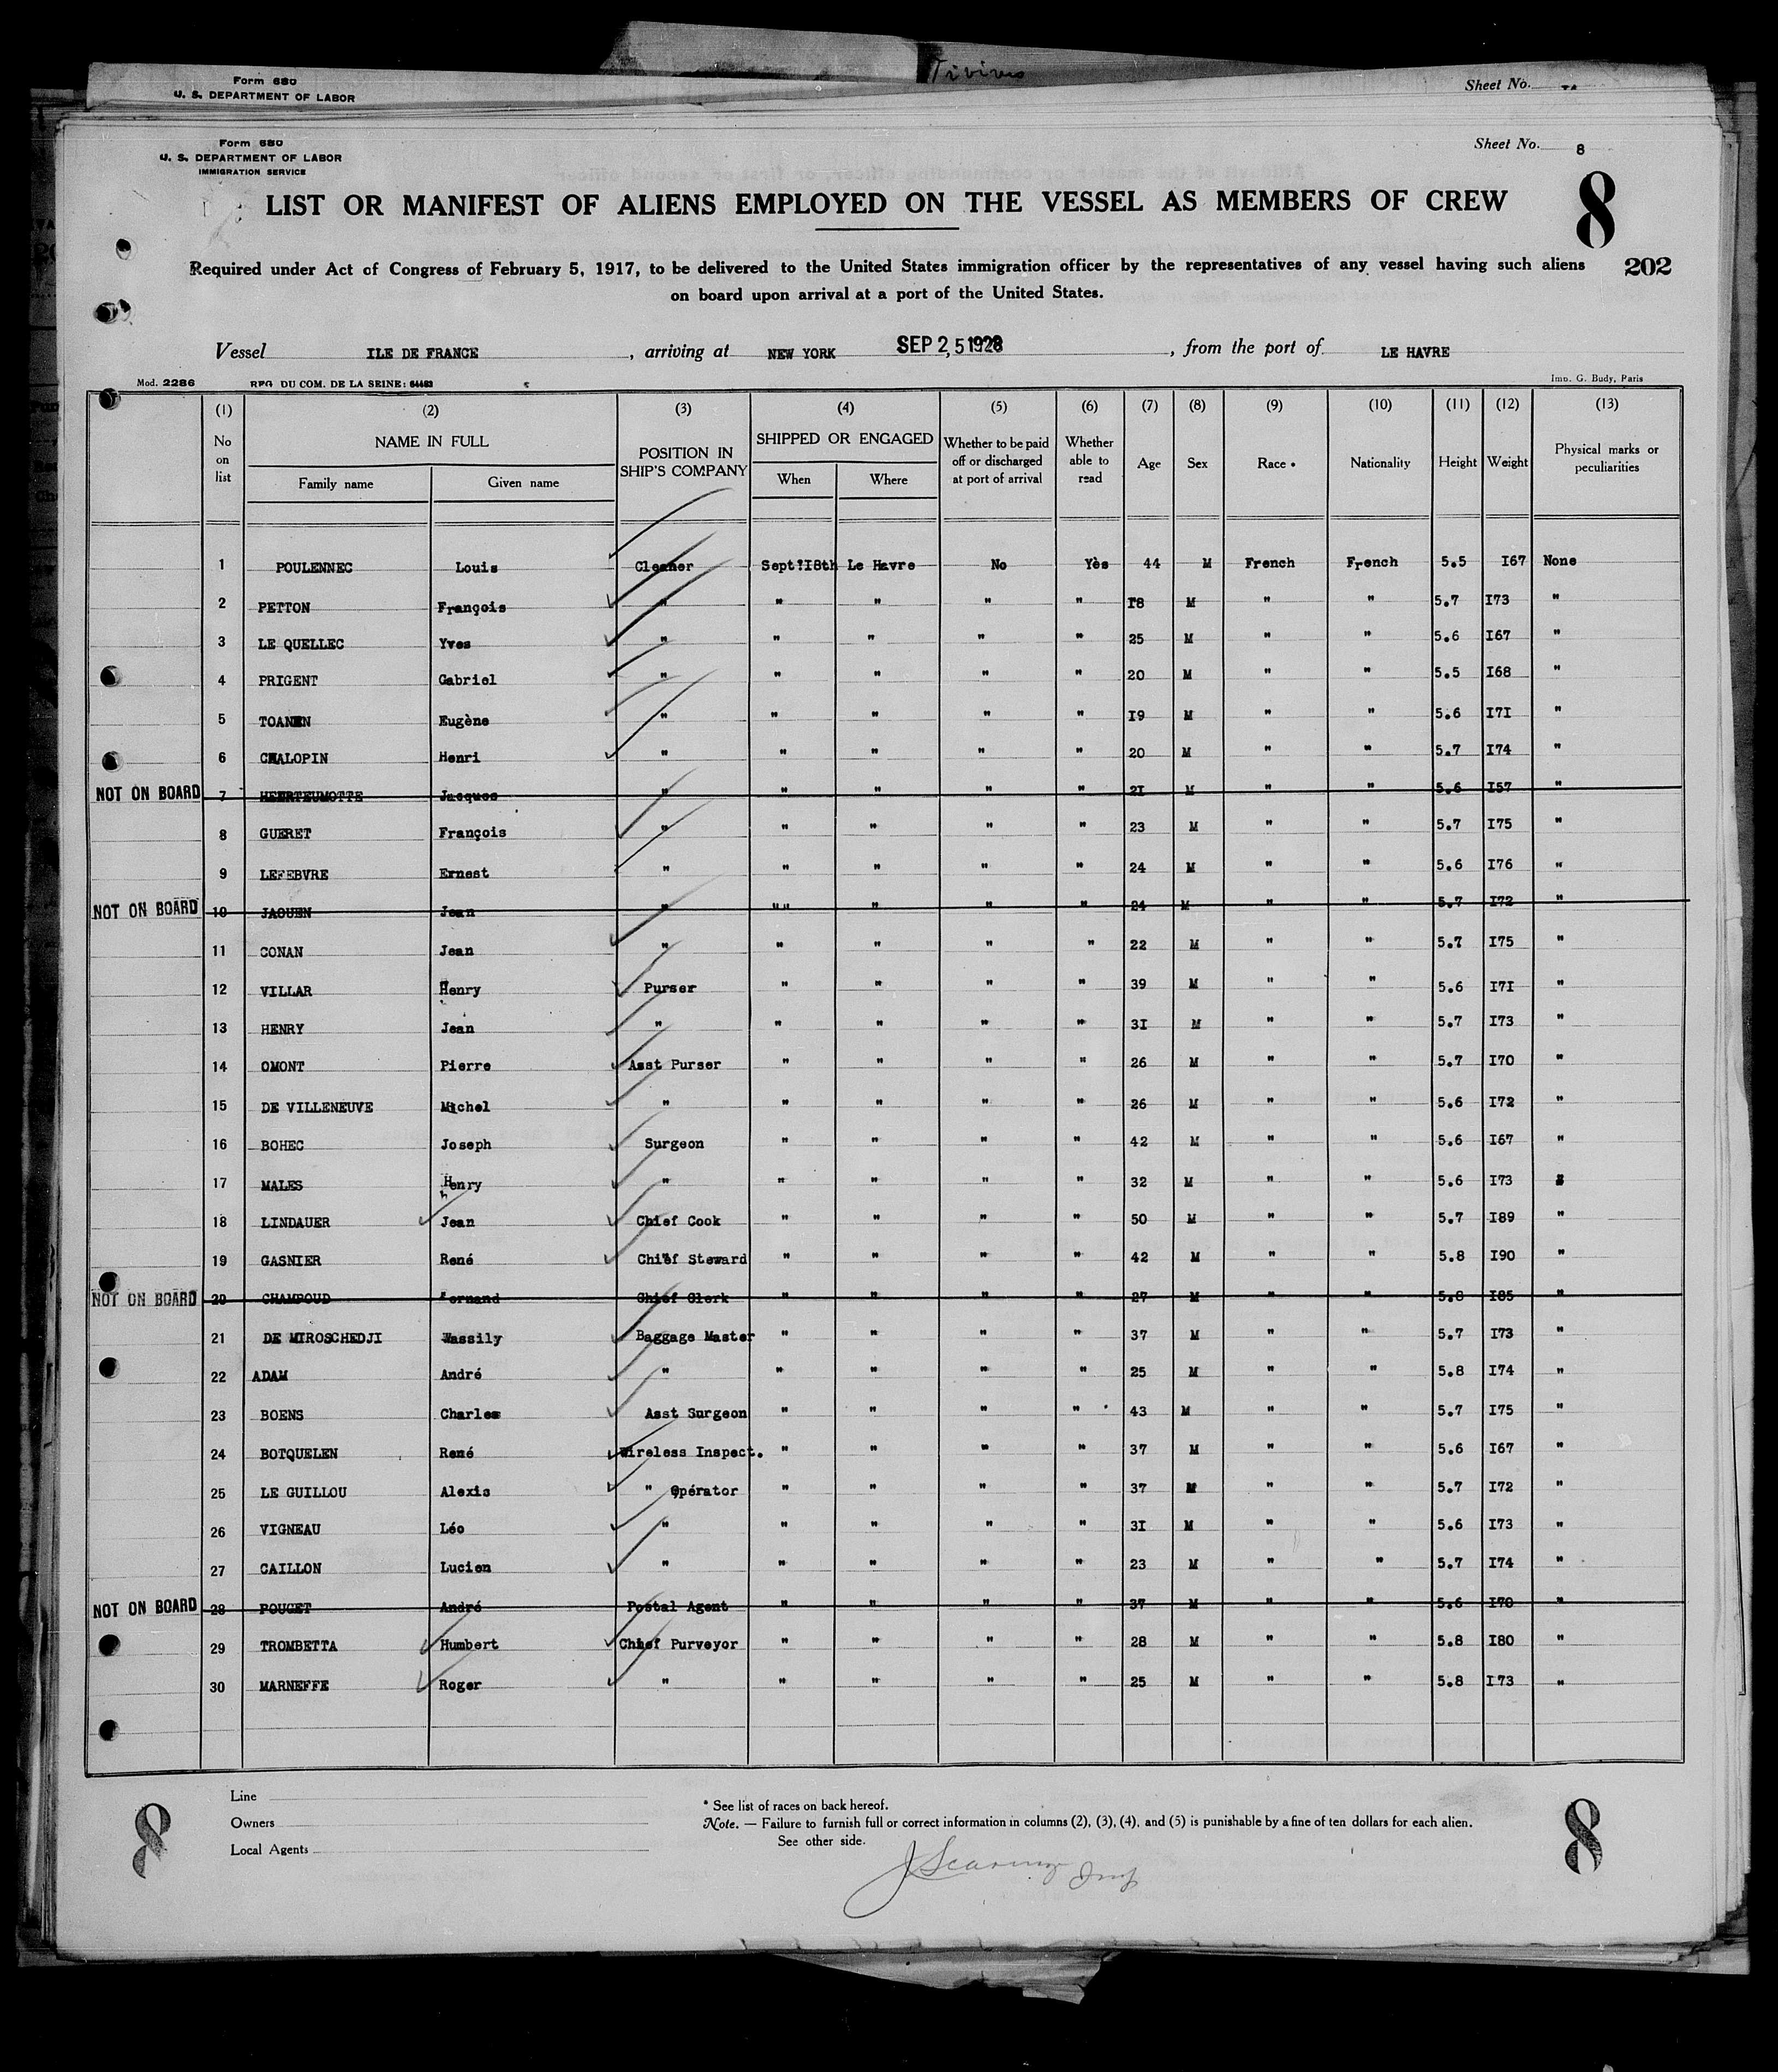 Tivives
Form 680
U. S. DEPARTMENT OF LABOR
Sheet No.
Form 680
U. S. DEPARTMENT OF LABOR
IMMIGRATION SERVICE
Sheet No. 8
8
LIST OR MANIFEST OF ALIENS EMPLOYED ON THE VESSEL AS MEMBERS OF CREW
Required under Act of Congress of February 5, 1917, to be delivered to the United States immigration officer by the representatives of any vessel having such aliens 202
on board upon arrival at a port of the United States.
Vessel ILE DE FRANCE , arriving at NEW YORK SEP 25 1928 , from the port of LE HAVRE
Mod. 2286 REG. DU COM. DE LA SEINE: 64483 Imp. G. Budy, Paris
(1) (2) (3) (4) (5) (6) (7) (8) (9) (10) (11) (12) (13)
No on list NAME IN FULL Family name Given name POSITION IN SHIP'S COMPANY SHIPPED OR ENGAGED When Where Whether to be paid off or discharged at port of arrival Whether able to read Age Sex Race * Nationality Height Weight Physical marks or peculiarities
1 POULENNEC Louis Cleaner Sept. 18th Le Havre No Yès 44 M French French 5.5 167 None
2 PETTON François " " " " " 18 M " " 5.7 173 "
3 LE QUELLEC Yves " " " " " 25 M " " 5.6 167 "
4 PRIGENT Gabriel " " " " " 20 M " " 5.5 168 "
5 TOANEN Eugène " " " " " 19 M " " 5.6 171 "
6 CHALOPIN Henri " " " " " 20 M " " 5.7 174 "
NOT ON BOARD 7 HEURTEUMOTTE Jacques " " " " " 21 M " " 5.6 157 "
8 GUERET François " " " " " 23 M " " 5.7 175 "
9 LEFEBVRE Ernest " " " " " 24 M " " 5.6 176 "
NOT ON BOARD 10 JAOUEN Jean " "" " " " 24 M " " 5.7 172 "
11 CONAN Jean " " " " " 22 M " " 5.7 175 "
12 VILLAR Henry Purser " " " " 39 M " " 5.6 171 "
13 HENRY Jean " " " " " 31 M " " 5.7 173 "
14 OMONT Pierre Asst Purser " " " " 26 M " " 5.7 170 "
15 DE VILLENEUVE Michel " " " " " 26 M " " 5.6 172 "
16 BOHEC Joseph Surgeon " " " " 42 M " " 5.6 167 "
17 MALES Henry " " " " " 32 M " " 5.6 173
18 LINDAUER Jean Chief Cook " " " " 50 M " " 5.7 189 "
19 GASNIER René Chief Steward " " " " 42 M " " 5.8 190 "
NOT ON BOARD 20 CHAMBOUD Fernand Chief Clerk " " " " 27 M " " 5.8 185 "
21 DE MIROSCHEDJI Wassily Baggage Master " " " " 37 M " " 5.7 173 "
22 ADAM André " " " " " 25 M " " 5.8 174 "
23 BOENS Charles Asst Surgeon " " " " 43 M " " 5.7 175 "
24 BOTQUELEN René Wireless Inspect. " " " " 37 M " " 5.6 167 "
25 LE GUILLOU Alexis " Opérator " " " " 37 M " " 5.7 172 "
26 VIGNEAU Léo " " " " " 31 M " " 5.6 173 "
27 CAILLON Lucien " " " " " 23 M " " 5.7 174 "
NOT ON BOARD 28 POUGET André Postal Agent " " " " 37 M " " 5.6 170 "
29 TROMBETTA Humbert Chief Purveyor " " " " 28 M " " 5.8 180 "
30 MARNEFFE Roger " " " " " 25 M " " 5.8 173 "
Line
Owners
Local Agents
* See list of races on back hereof.
Note. — Failure to furnish full or correct information in columns (2), (3), (4), and (5) is punishable by a fine of ten dollars for each alien.
See other side.
8
8